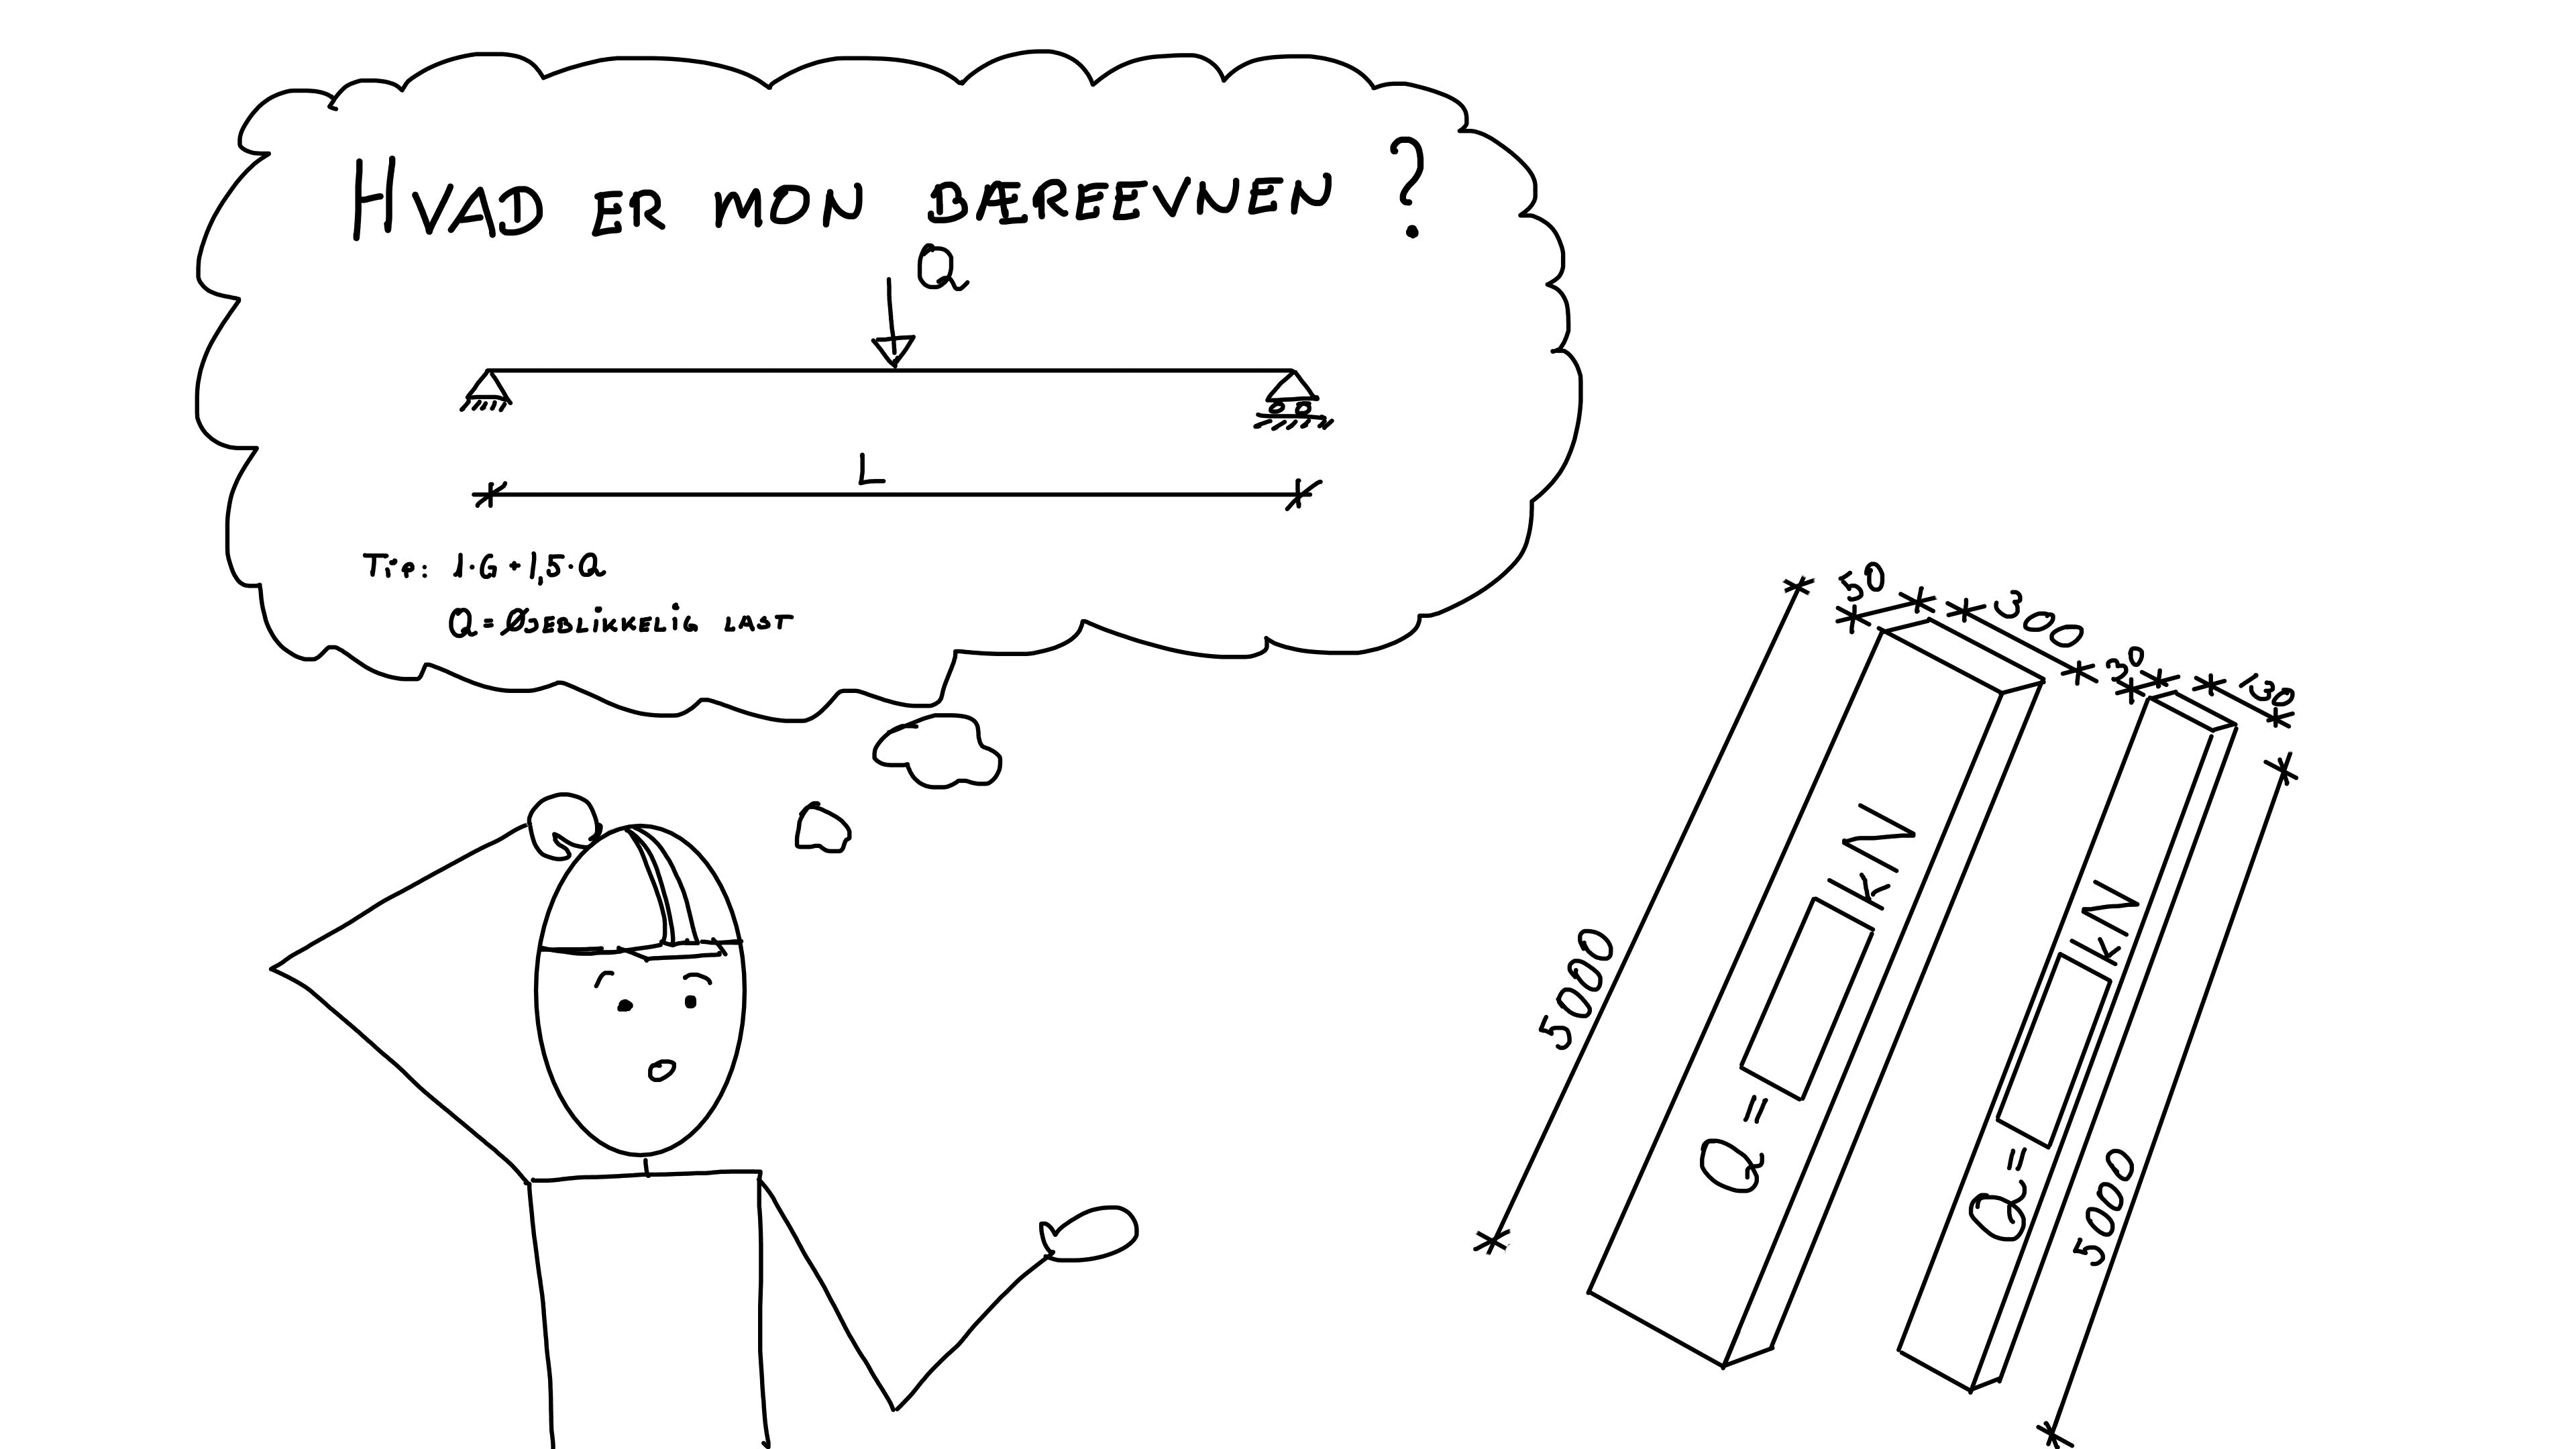 HVAD ER MON BÆREEVNEN ?
Q
L
Tip: 1·G + 1,5·Q
Q = ØJEBLIKKELIG LAST
50
300
30
130
5000
Q = kN
Q = kN
5000